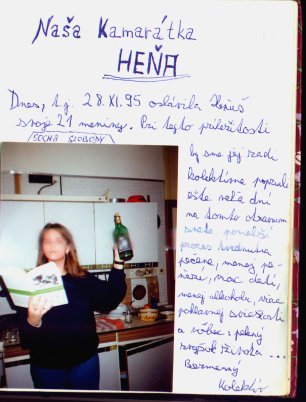 Naša Kamarátka
HEŇA
Dnes, t.j. 28.XI.95 oslávila Heňaš
svoje 21 meniny. Pri tejto príležitosti
SOCHA SLOBODY
by sme jej radi
kolektívne popriali
ešte veľa dní
na tomto otravnom
svete, pomalší
proces tvrdnutia
pečene, menej pe-
ňazí, viac detí,
menej alkoholu, viac
pohlavnej sviežosti
a vôbec: pekný
zvyšok života ...
Bezmenný
Kolektív